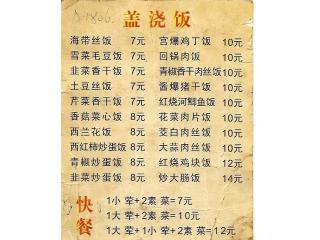 盖浇饭
海带丝饭 7元 宫爆鸡丁饭 10元
雪菜毛豆饭 7元 回锅肉饭 10元
韭菜香干饭 7元 青椒香干肉丝饭 10元
土豆丝饭 7元 酱爆猪干饭 10元
芹菜香干饭 7元 红烧河鲫鱼饭 10元
香菇菜心饭 8元 花菜肉片饭 10元
西兰花饭 8元 茭白肉丝饭 10元
西红柿炒蛋饭 8元 大蒜肉丝饭 10元
青椒炒蛋饭 8元 红烧鸡块饭 12元
韭菜炒蛋饭 8元 炒大肠饭 14元
快餐
1小 荤+2素 菜=7元
1大 荤+2素 菜=10元
1大 荤+1小 荤+2素 菜=12元